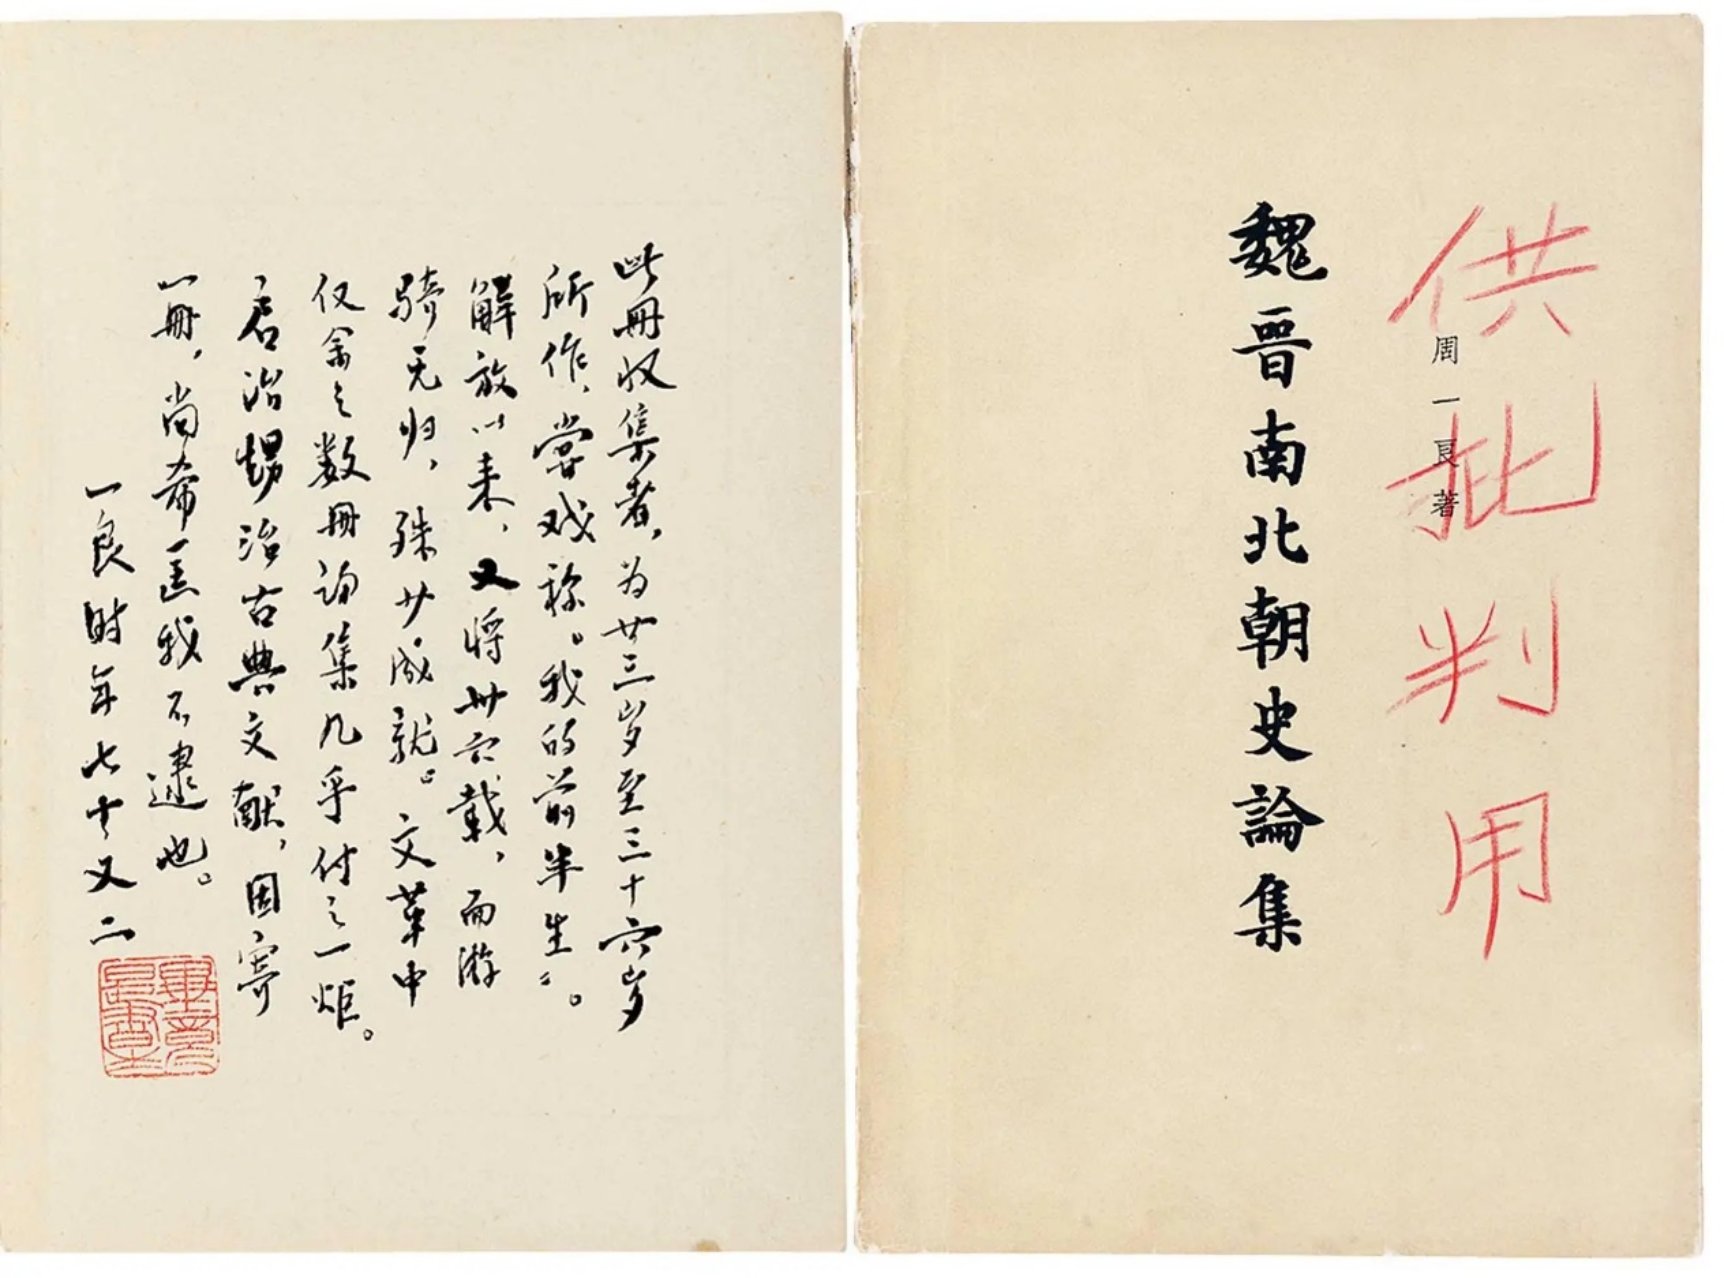 供批判用
周一良著
魏晉南北朝史論集
此冊收集者，为廿三岁至三十六岁
所作，尝戏称“我的前半生”。
解放以来，又将卅六载，而游
骑无归，殊少成就。文革中
仅余之数冊论集几乎付之一炬。
启治甥治古典文献，因寄
一冊，尚希匡我不逮也。
一良时年七十又二
毕竟是书生